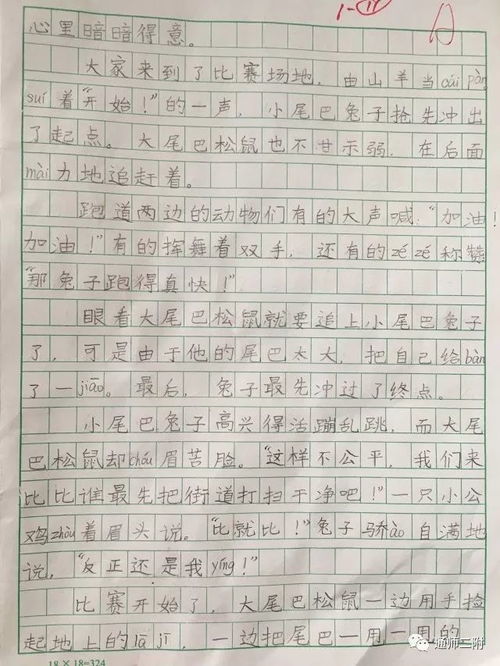 1-11 A
心里暗暗得意。
大家来到了比赛场地,由山羊当cái pàn
suí着“开始!”的一声,小尾巴兔子抢先冲出
了起点。大尾巴松鼠也不甘示弱,在后面
mài力地追赶着。
跑道两边的动物们有的大声喊:“加油!
加油!”有的挥舞着双手,还有的zé zé称赞
“那兔子跑得真快!”
眼看大尾巴松鼠就要追上小尾巴兔子
了,可是由于他的尾巴太大,把自己给bàn
了一jiāo。最后,兔子最先冲过了终点。
小尾巴兔子高兴得活蹦乱跳,而大尾
巴松鼠却chóu眉苦脸。“这样不公平,我们来
比比谁最先把街道打扫干净吧!”一只小公
鸡zhòu着眉头说。“比就比!”兔子骄ào自满地
说,“反正还是我yíng!”
比赛开始了,大尾巴松鼠一边用手捡
起地上的lā jī,一边把尾巴一甩一甩的
18×18=324
通师二附